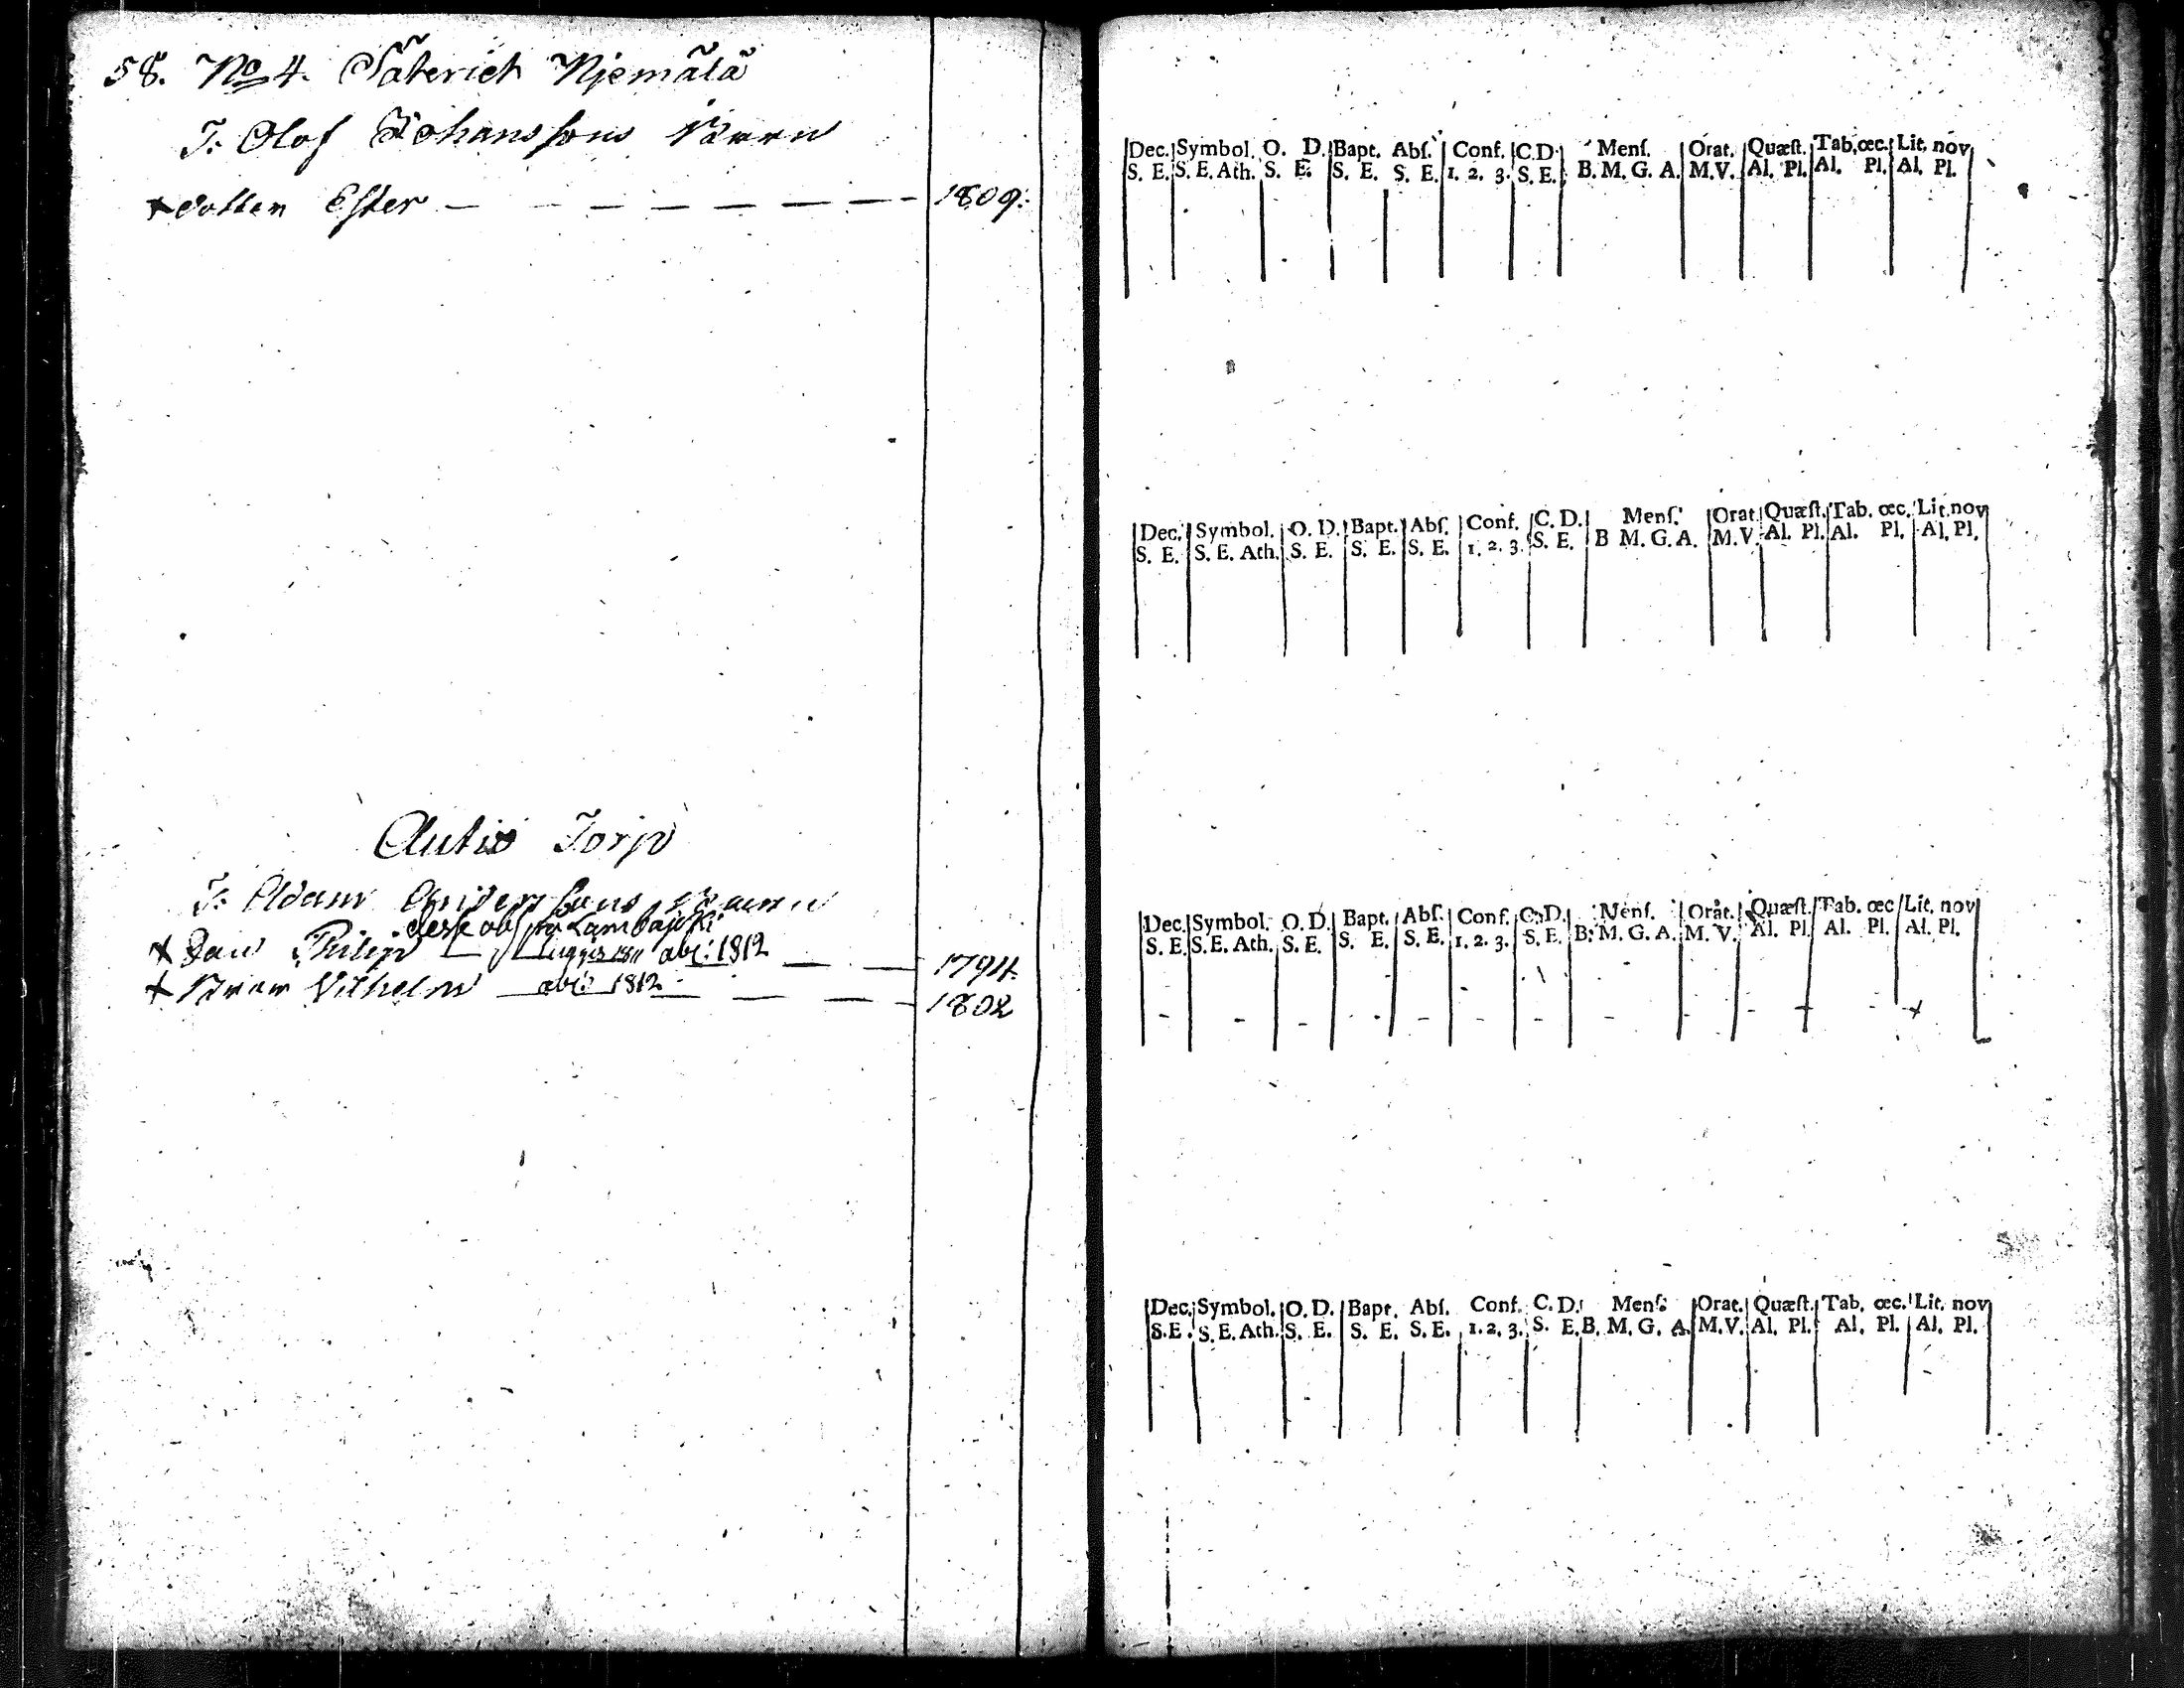 58. No 4. Säterict Njemälä
T: Olof Johanssons Barn
+ dotten Ester — — — — — — — 1809.
Autio Torp
T: Adam Anderssons Barn
+ Son Philip abs: 1812 — — 1794
+ Wilhelm abs: 1812 — — — — 1802
Dec. Symbol. O. D. Bapt. Abſ. Conf. C.D. Menſ. Orat. Quæſt. Tab. œc. Lit. nov
S. E. S. E. Ath. S. E. S. E. S. E. 1. 2. 3. S. E. B. M. G. A. M. V. Al. Pl. Al. Pl. Al. Pl.
Dec. Symbol. O. D. Bapt. Abſ. Conf. C. D. Menſ. Orat. Quæſt. Tab. œc. Lit. nov
S. E. S. E. Ath. S. E. S. E. S. E. 1. 2. 3. S. E. B M. G. A. M. V. Al. Pl. Al. Pl. Al. Pl.
Dec. Symbol. O. D. Bapt. Abſ. Conf. C. D. Menſ. Orat. Quæſt. Tab. œc. Lit. nov
S. E. S. E. Ath. S. E. S. E. S. E. 1. 2. 3. S. E. B. M. G. A. M. V. Al. Pl. Al. Pl. Al. Pl.
Dec. Symbol. O. D. Bapt. Abſ. Conf. C. D. Menſ. Orat. Quæſt. Tab. œc. Lit. nov
S. E. S. E. Ath. S. E. S. E. S. E. 1. 2. 3. S. E. B. M. G. A. M. V. Al. Pl. Al. Pl. Al. Pl.